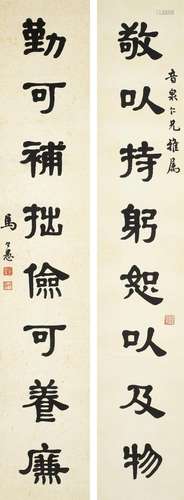 敬以持躬恕以及物
音泉仁兄雅属
勤可補拙儉可養廉
馬公愚